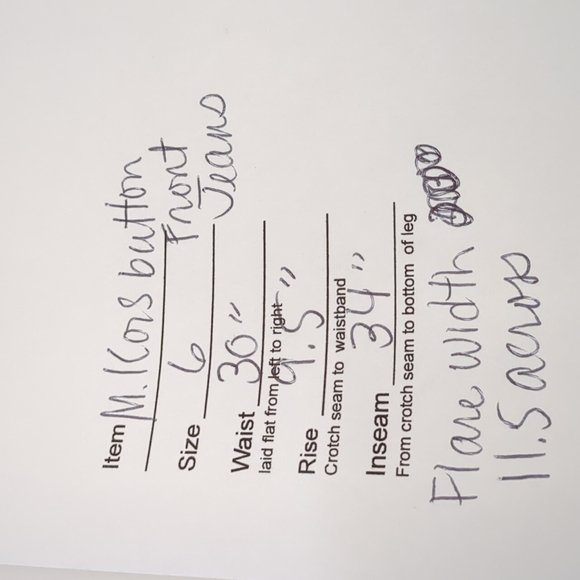 Item M. Kors button
Front
Size 6 Jeans
Waist 30"
laid flat from left to right
Rise 9.5"
Crotch seam to waistband
Inseam 34"
From crotch seam to bottom of leg
Flare width
11.5 across